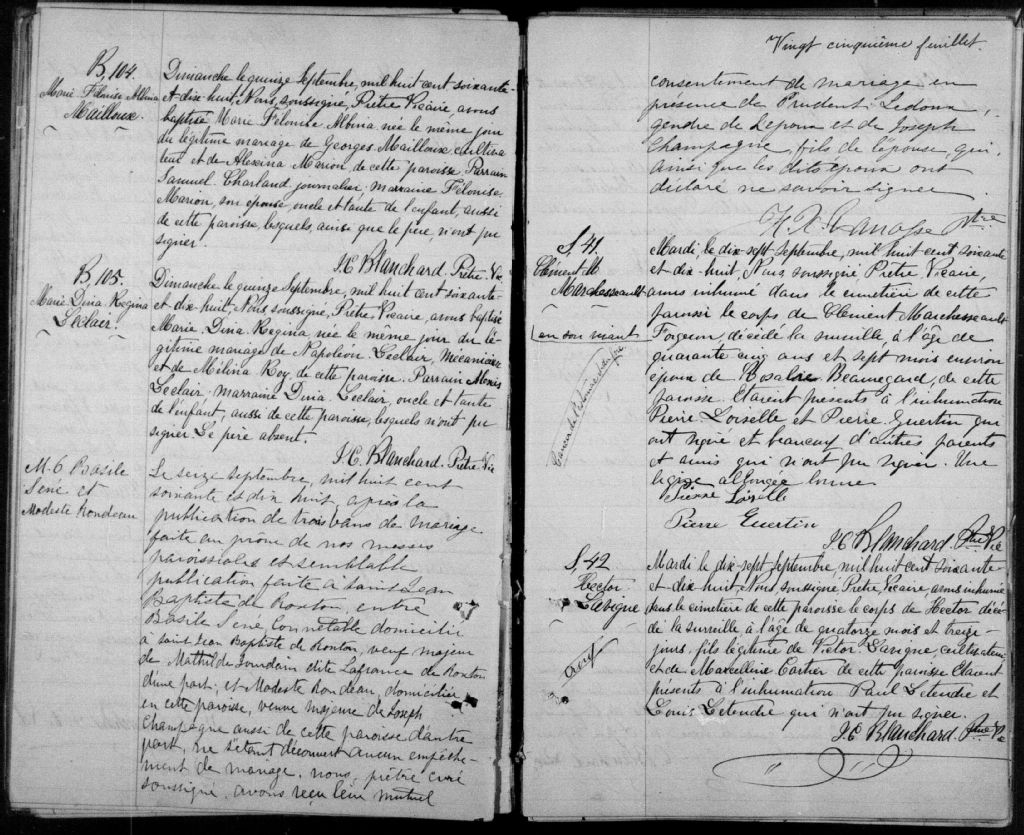 B, 104.
Marie Félonise Albina
Mailloux.
Dimanche le quinze Septembre, mil huit cent soixante-
et-dix-huit, Nous, soussigné, Prêtre Vicaire, avons
baptisé Marie Félonise Albina née le même jour
du légitime mariage de Georges Mailloux, cultiva
teur et de Alexina Marion de cette paroisse. Parrain
Samuel Charland journalier, marraine Félonise
Marion, son épouse, oncle et tante de l'enfant, aussi
de cette paroisse, lesquels, ainsi que le père, n'ont pu
signer.
J. E. Blanchard. Prêtre. Vic
B, 105.
Marie Dina Regina
Leclair.
Dimanche le quinze Septembre, mil huit cent soixante-
et-dix-huit, Nous, soussigné, Prêtre Vicaire, avons baptisé
Marie Dina Regina, née le même jour du lé
gitime mariage de Napoléon Leclair, mécanicien
et de Mélina Roy de cette paroisse. Parrain
Leclair, marraine Dina Leclair, oncle et tante
de l'enfant, aussi de cette paroisse, lesquels n'ont pu
signer. Le père absent.
J. E. Blanchard. Prêtre Vic
M. 6 Basile
Sené et
Modeste Rondeau
Le seize septembre, mil huit cent
soixante et dix huit, après la
publication de trois bans de mariage
faite au prône de nos messes
paroissiales et semblable
publication faite à Saint Jean
Baptiste de Roxton, entre
Basile Sené Connétable domicilié
à Saint Jean Baptiste de Roxton, veuf majeur
de Mathilde Jourdain dite Lafrance de Roxton
d'une part; et Modeste Rondeau, domiciliée
en cette paroisse, veuve majeure de Joseph
Champagne aussi de cette paroisse d'autre
part, ne s'étant découvert aucun empêche-
ment de mariage, nous, prêtre curé
soussigné, avons reçu leur mutuel
Vingt cinquième feuillet.
consentement de mariage en
présence de Prudent Ledoux
gendre de l'époux et de Joseph
Champagne, fils de l'épouse, qui,
ainsi que les dits époux ont
déclaré ne savoir signer
Ptre
S, 41.
Clément
Marchesseault
en son vivant
Mardi, le dix-sept Septembre, mil huit cent soixante
et-dix-huit, Nous, soussigné Prêtre Vicaire,
avons inhumé dans le cimetière de cette
paroisse le corps de Clément Marchesseault
Forgeron, décédé la surveille à l'âge de
quarante cinq ans et sept mois environ
époux de Rosalie Beauregard, de cette
paroisse. Etaient présents à l'inhumation
Pierre Loiselle et Pierre Guertin qui
ont signé et beaucoup d'autres parents
et amis qui n'ont pu signer. Une
ligne allongée bonne
Pierre Loiselle
Pierre Guertin
J. E. Blanchard Ptre Vic
S, 42
Hector
Lavigne
Mardi le dix-sept Septembre, mil huit cent soixante
et-dix-huit, Nous, soussigné, Prêtre, Vicaire, avons inhumé
dans le cimetière de cette paroisse le corps de Hector décé
dé la surveille à l'âge de quatorze mois et treize
jours, fils légitime de Victor Lavigne, cultivateur
et de Marcelline Cartier de cette paroisse Etaient
présents à l'inhumation Paul Letendre et
Louis Letendre qui n'ont pu signer.
J. E. Blanchard, Ptre Vic